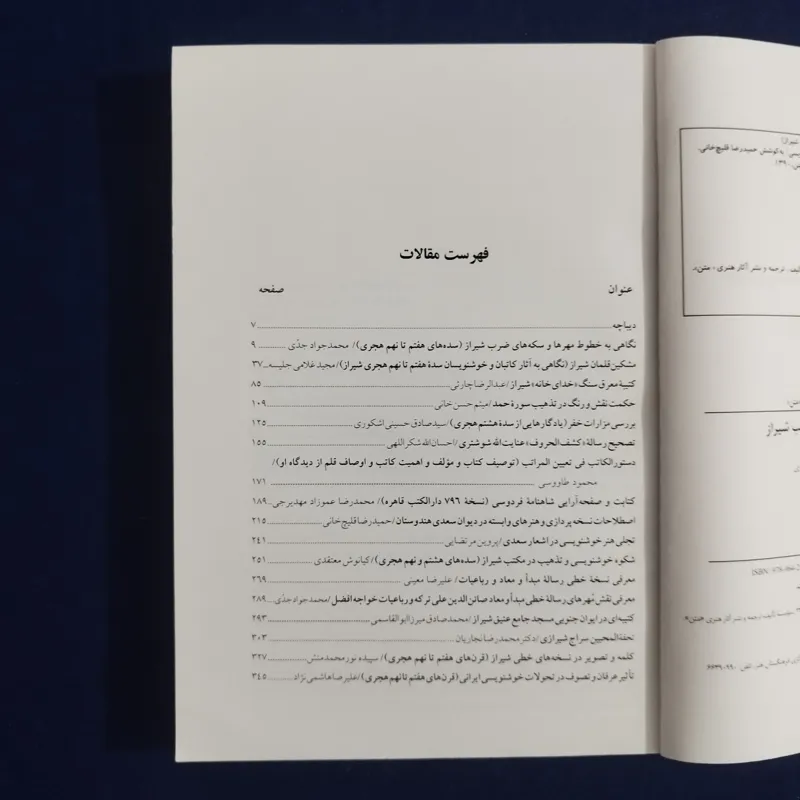 فهرست مقالات
عنوان صفحه
دیباچه ۷
نگاهی به خطوط مهرها و سکه‌های ضرب شیراز (سده‌های هفتم تا نهم هجری)/ محمدجواد جدّی ۹
مشکین‌قلمان شیراز (نگاهی به آثار کاتبان و خوشنویسان سدهٔ هفتم تا نهم هجری شیراز)/ مجید غلامی جلیسه ۳۷
کتیبهٔ معرق سنگ «خدای خانه» شیراز/ عبدالرضا چارئی ۸۵
حکمت نقش و رنگ در تذهیب سورهٔ حمد/ میثم حسن‌خانی ۱۰۹
بررسی مزارات خفر (یادگارهایی از سدهٔ هشتم هجری)/ سیدصادق حسینی اشکوری ۱۲۵
تصحیح رسالهٔ «کشف‌الحروف» عنایت‌الله شوشتری/ احسان‌الله شکراللهی ۱۵۵
دستورالکاتب فی تعیین المراتب (توصیف کتاب و مؤلف و اهمیت کاتب و اوصاف قلم از دیدگاه او)/
محمود طاووسی ۱۷۱
کتابت و صفحه‌آرایی شاهنامهٔ فردوسی (نسخهٔ ۷۹۶ دارالکتب قاهره)/ محمدرضا عموزاد مهدیرجی ۱۸۹
اصطلاحات نسخه‌پردازی و هنرهای وابسته در دیوان سعدی هندوستان/ حمیدرضا قلیچ‌خانی ۲۱۵
تجلی هنر خوشنویسی در اشعار سعدی/ پروین مرتضایی ۲۴۱
شکوه خوشنویسی و تذهیب در مکتب شیراز (سده‌های هشتم و نهم هجری)/ کیانوش معتقدی ۲۵۱
معرفی نسخهٔ خطی رسالهٔ مبدأ و معاد و رباعیات/ علیرضا معینی ۲۶۹
معرفی نقش مُهرهای رسالهٔ خطی مبدأ و معاد صائن‌الدین علی ترکه و رباعیات خواجه افضل/ محمدجواد جدّی ۲۸۹
کتیبه‌ای در ایوان جنوبی مسجد جامع عتیق شیراز/ محمدصادق میرزاابوالقاسمی ۲۹۳
تحفةالمحبین سراج شیرازی/ دکتر محمدرضا نجاریان ۳۰۳
کلمه و تصویر در نسخه‌های خطی شیراز (قرن‌های هفتم تا نهم هجری)/ سپیده نورمحمدمنش ۳۲۷
تأثیر عرفان و تصوف در تحولات خوشنویسی ایرانی (قرن‌های هفتم تا نهم هجری)/ علیرضا هاشمی‌نژاد ۳۴۵
به کوشش حمیدرضا قلیچ‌خانی.
ترجمه و نشر آثار هنری - متن،
شیراز
ISBN